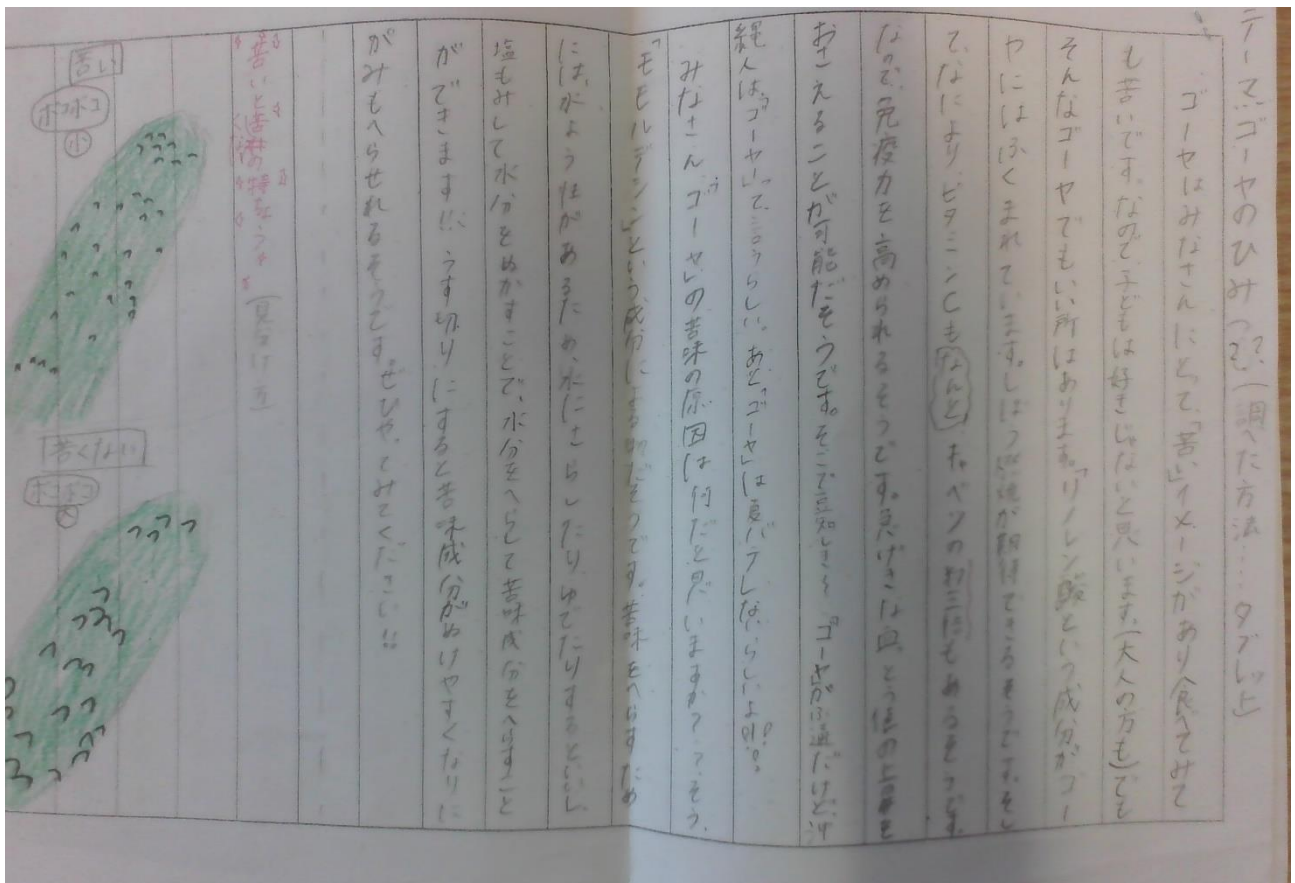 テーマ:ゴーヤのひみつ??(調べた方法……タブレット)
ゴーヤはみなさんにとって、「苦い」イメージがあり食べてみて
も苦いです。なので、子どもは好きじゃないと思います。(大人の方も)でも
そんなゴーヤでもいい所はあります。「リノレン酸という成分がゴー
ヤにはふくまれています。しぼう燃焼が期待できるそうです。そし
て、なにより、ビタミンCもなんと、キャベツの約三倍もあるそうです。
なので、免疫力を高められるそうです。さらに血とう値の上昇を
おさえることが可能だそうです。そこで豆知しき〜「ゴーヤ」がふ通だけど沖
縄人は、「ゴーヤー」って、言うらしい。あと「ゴーヤ」は夏バテしないらしいよ
みなさん「ゴーヤ」の苦味の原因は何だと思いますか?そう、
「モモルデシン」という成分によるものだそうです。苦味をへらすため
には、水よう性があるため、水にさらしたり、ゆでたりするといい」
塩もみして水分をぬかすことで、水分をへらして苦味成分をへらすこと
ができます!!うす切りにすると苦味成分がぬけやすくなりに
がみもへらせれるそうです。ぜひやってみてください!!
(見分け方)
苦い
ボコボコ
小
苦くない
ボコボコ
大